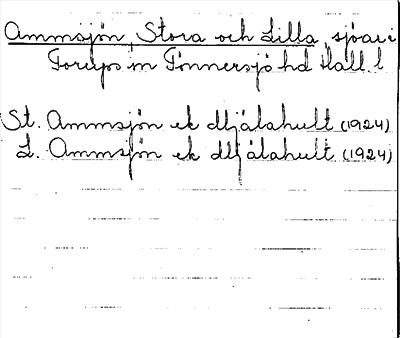 Ammsjön, Stora och Lilla, sjöar i
Torups sn Tönnersjö hd Hall. l.
St. Ammsjön ek Mjälahult (1924)
L. Ammsjön ek Mjälahult (1924)